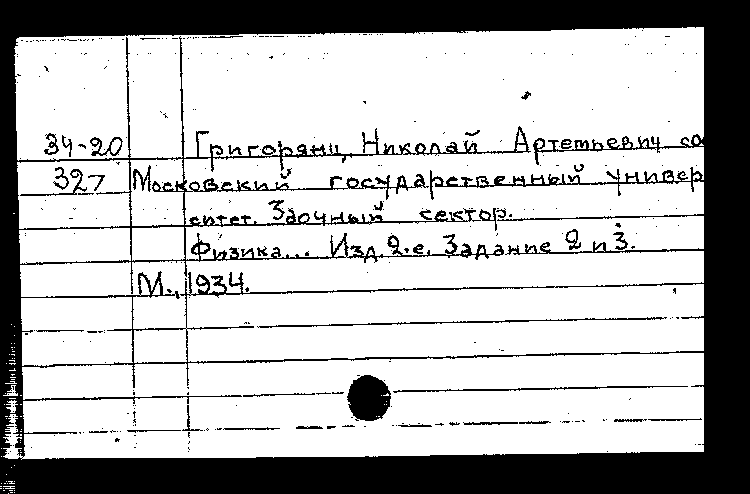 34-20 Григорянц, Николай Артемьевич со
327 Московский государственный универ
ситет. Заочный сектор.
Физика... Изд. 2-е. Задание 2 и 3.
М., 1934.